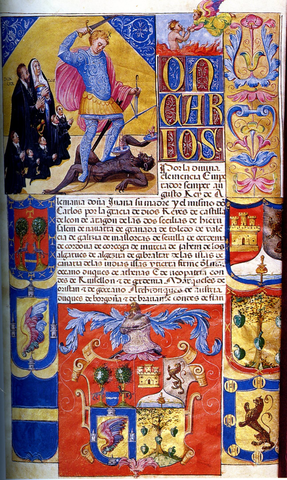 DON
CARLOS
Por la divina
clemencia Empe
rador semper au
gusto Rey de A
lemania doña Juana su madre y el mismo dõ
Carlos por la gracia de dios Reyes de castilla
de leon de aragon de las dos secilias de hieru
salem de navarra de granada de toledo de valẽ
cia de galizia de mallorcas de sevilla de cerdena
de cordova de corcega de murcia de jahen de los
algarves de algezira de gibraltar de las islas de
canaria de las indias islas y tierra firme del mar
oceano duques de athenas e de neopatria con
des de Ruisellon e de cerdenia Marqueses de
oristan e de gociano Archiduques de austria
duques de borgoña e de bravante condes de flan